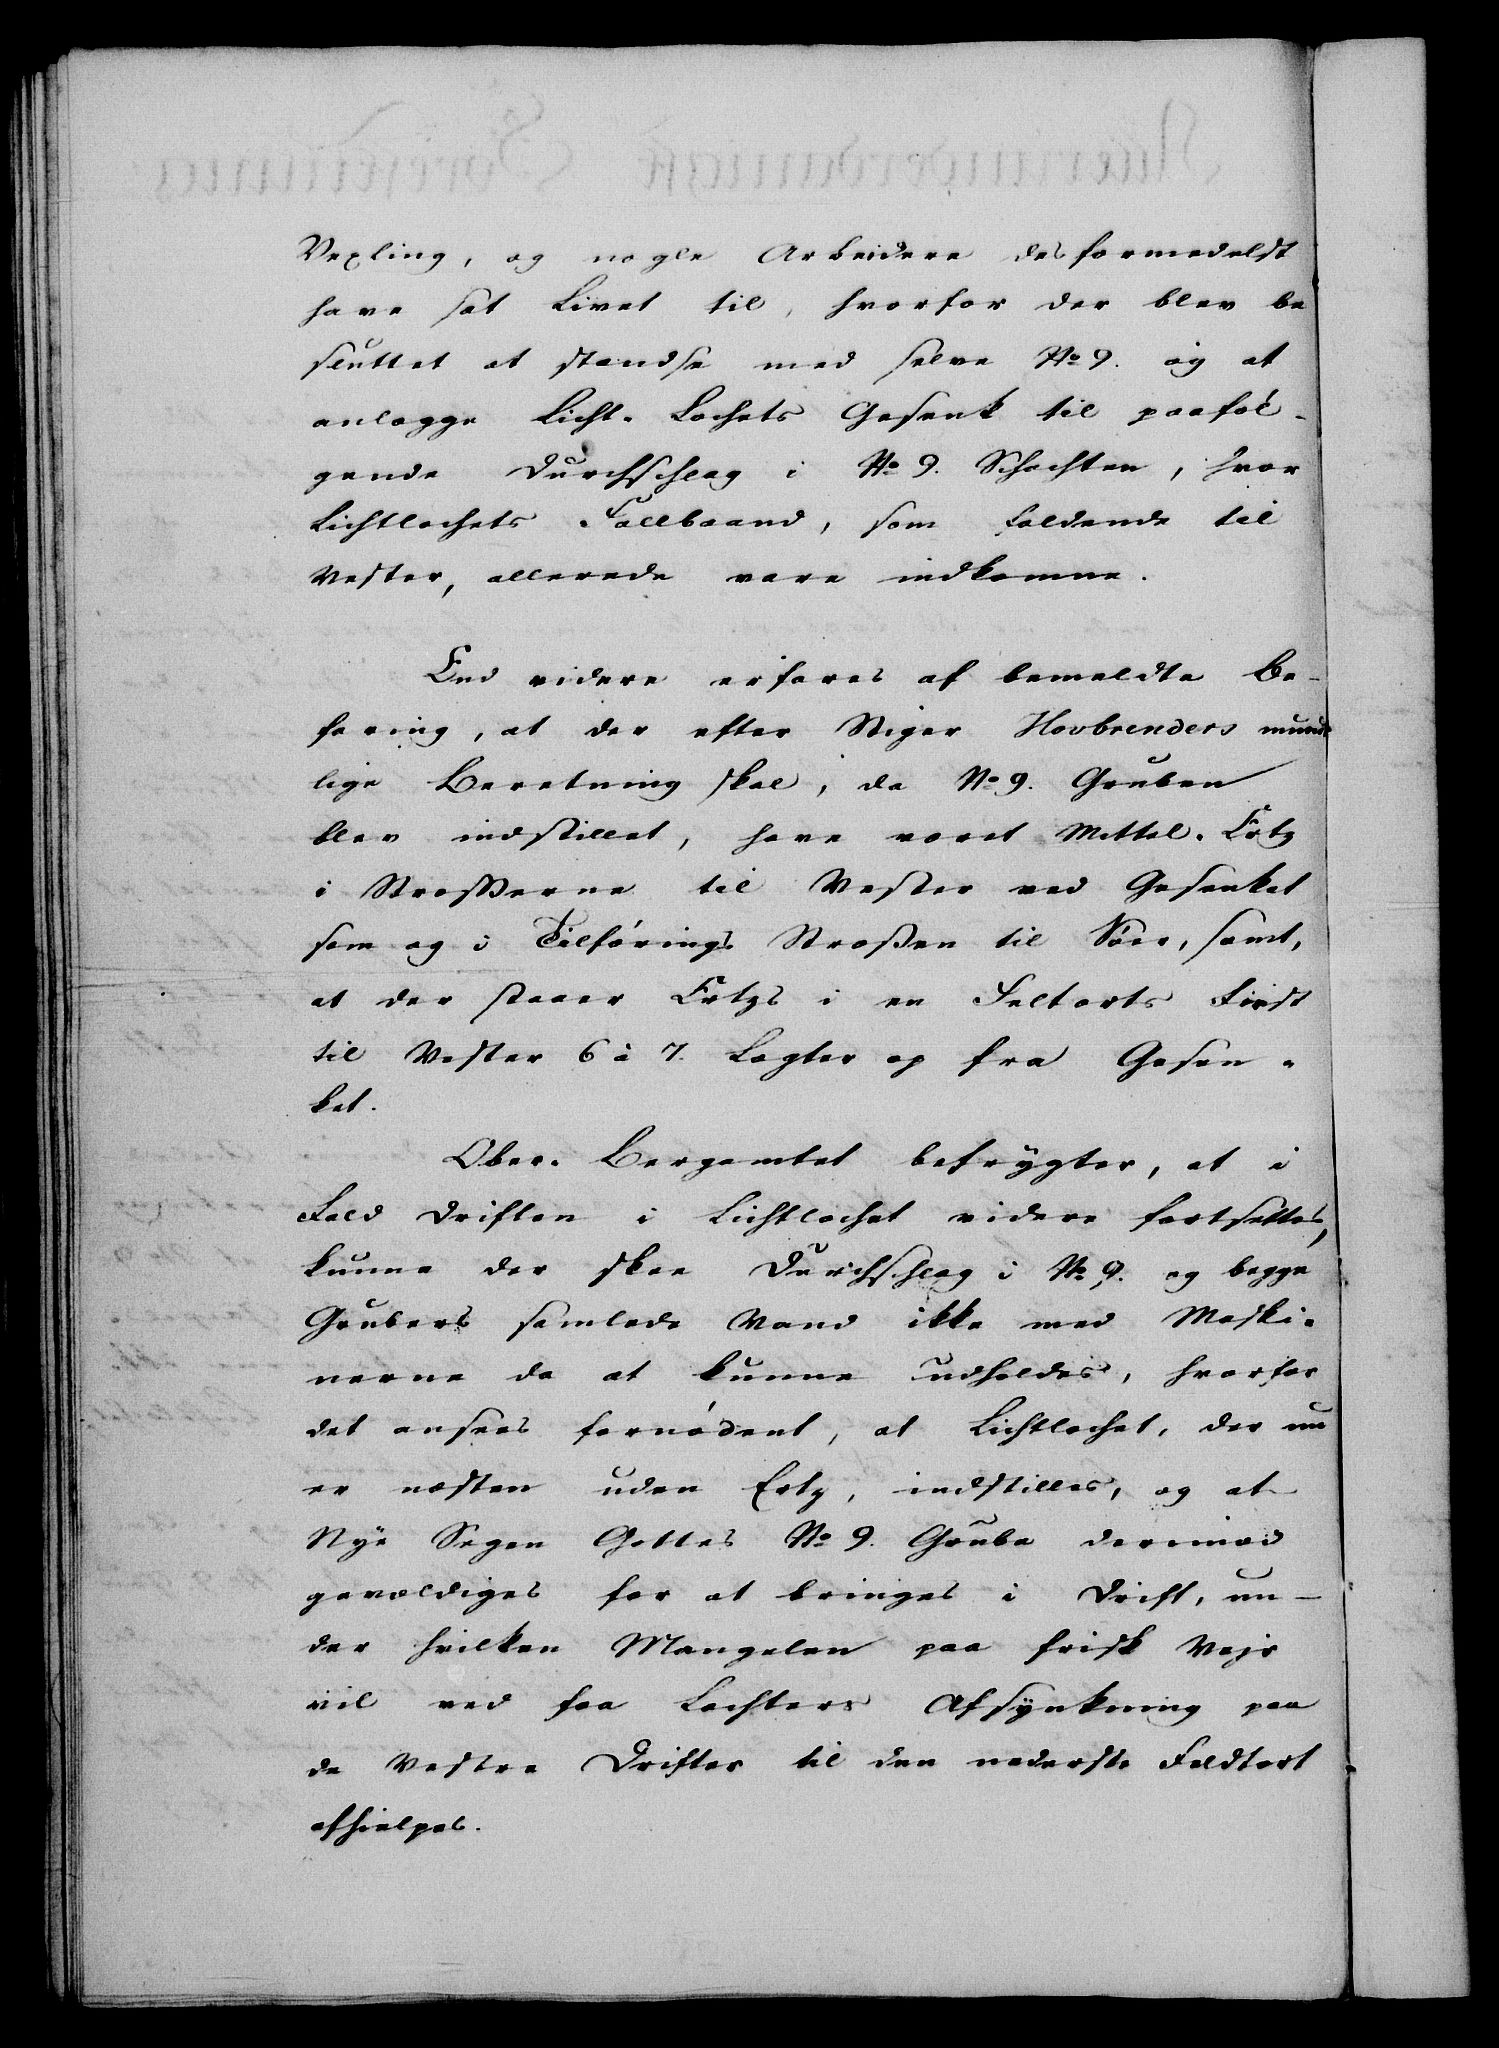 Vexling, og nogle Arbeidere desformedelst
have sat Livet til, hvorfor der blev be
sluttet at standse med selve No 9. og at
anlægge Licht-Lochets Gesenk til paaføl-
gende Durchschlag i No 9. Schachten, hvor
Lichtlochets Fallbaand, som faldende til
Vester, allerede vare indkomne.
End videre erfares af bemeldte Be-
faring, at der efter Stiger Hovbrenders mund
lige Beretning skal, da No 9. Gruben
blev indstillet, have været Mittel-Ertz
i Strosserne til Vester ved Gesenket
som og i Tilførings Strossen til Søer, samt,
at der staaer Ertzs i en Feltorts First
til Vester 6 à 7. Lagter op fra Gesen-
ket.
Ober-Bergamtet befrygter, at i
Fald Driften i Lichtlochet videre fortsættes,
kunne der skee Durchschlag i No 9. og begge
Grubers samlede Vand ikke med Maski-
nerne da at kunne udholdes, hvorfor
det ansees fornødent, at Lichtlochet, der nu
er næsten uden Ertz, indstilles, og at
Nye Segen Gottes No 9. Grube derimod
gevældiges for at bringes i Drift, un-
der hvilken Mangelen paa frisk Vejr
vil ved faa Lachters Afsynkning paa
de Vestre Drifter til den nederste Feldtort
afhielpes.